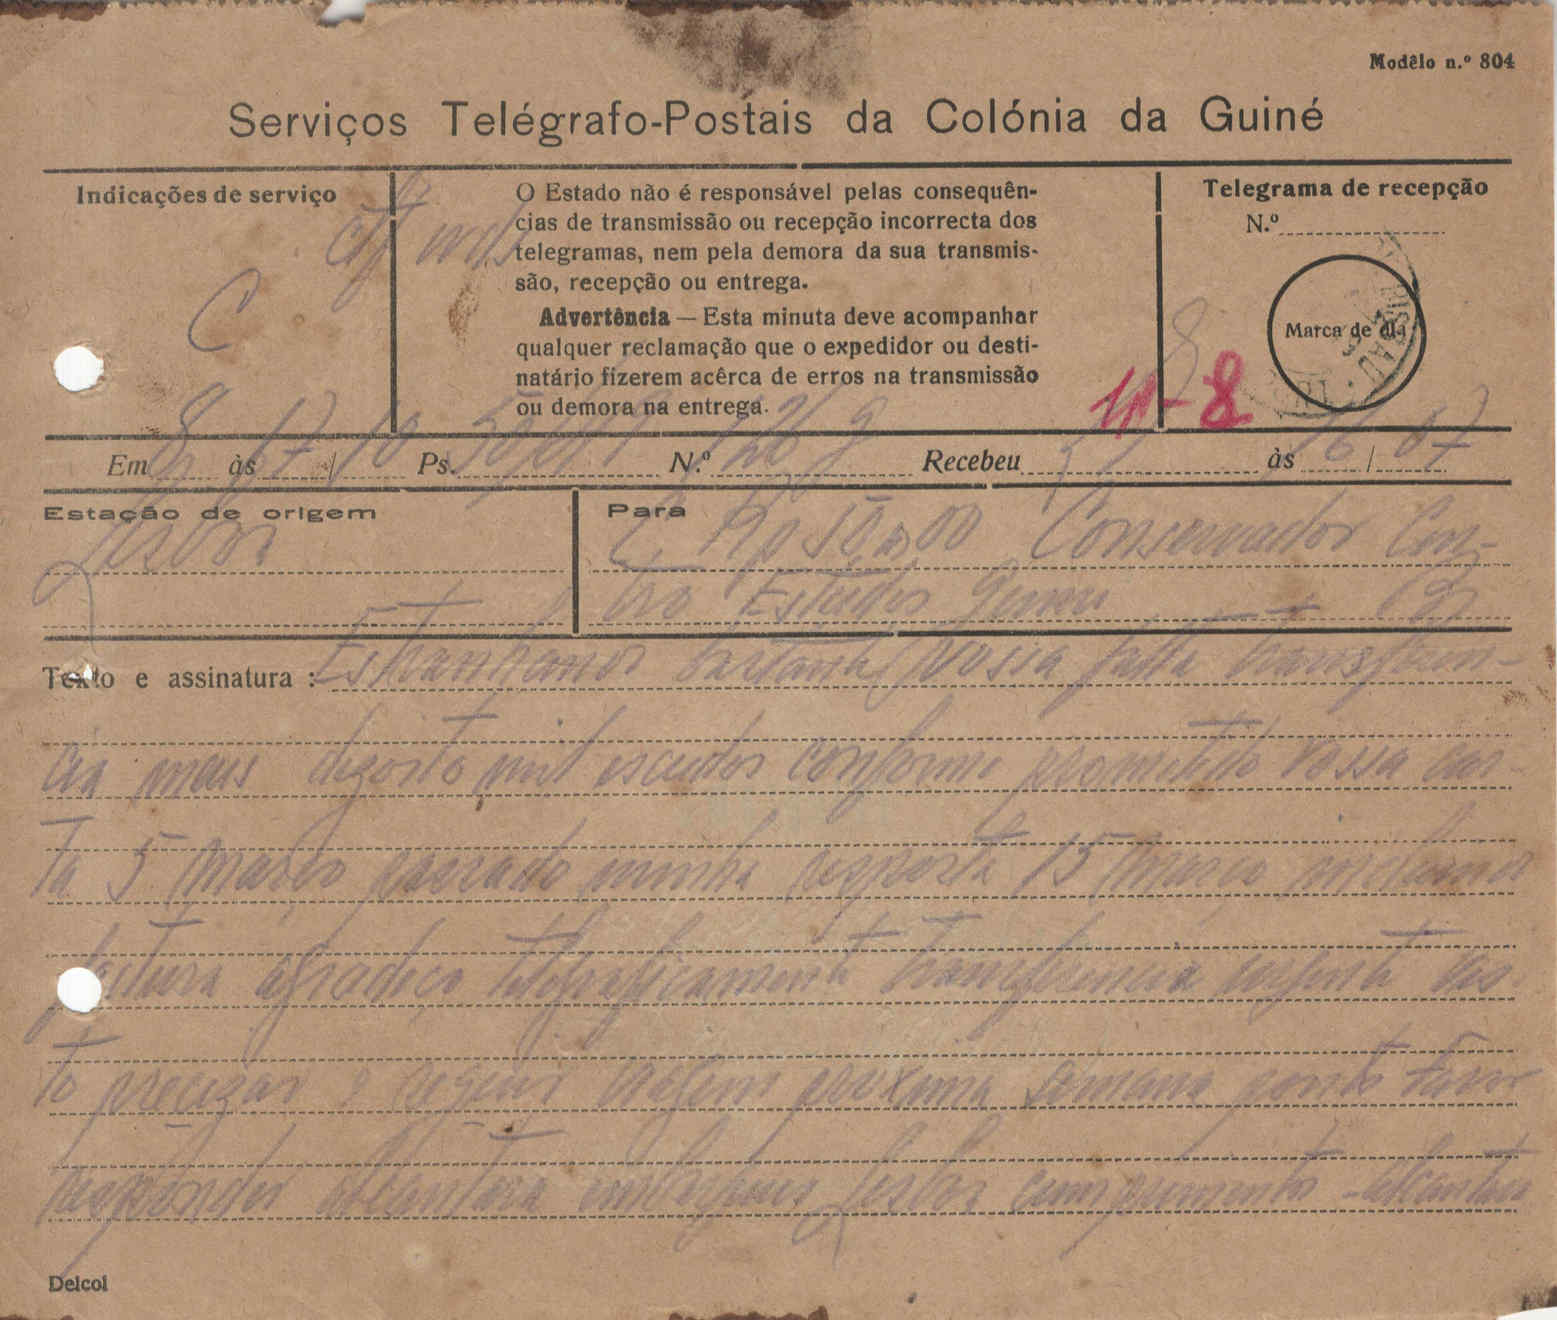 Modêlo n.º 804
Serviços Telégrafo-Postais da Colónia da Guiné
Indicações de serviço
C
O Estado não é responsável pelas consequên-
cias de transmissão ou recepção incorrecta dos
telegramas, nem pela demora da sua transmis-
são, recepção ou entrega.
Advertência — Esta minuta deve acompanhar
qualquer reclamação que o expedidor ou desti-
natário fizerem acêrca de erros na transmissão
ou demora na entrega.
Telegrama de recepção
N.º
Marca de dia
Em às 17/10 Ps. N.º Recebeu às 16/07
Estação de origem
Lisboa
Para
Rp 50,00 Conservador Cen-
tro Estudos Guiné
Texto e assinatura : Estranhando bastante vossa falta transferen-
cia mais dezoito mil escudos conforme prometido vossa car-
ta 5 março passado minha resposta 15 março
agradeço telegraficamente transferencia urgente vis-
to precizar seguir viagem proxima semana ponto favor
responder Lisboa cumprimentos
Delcol